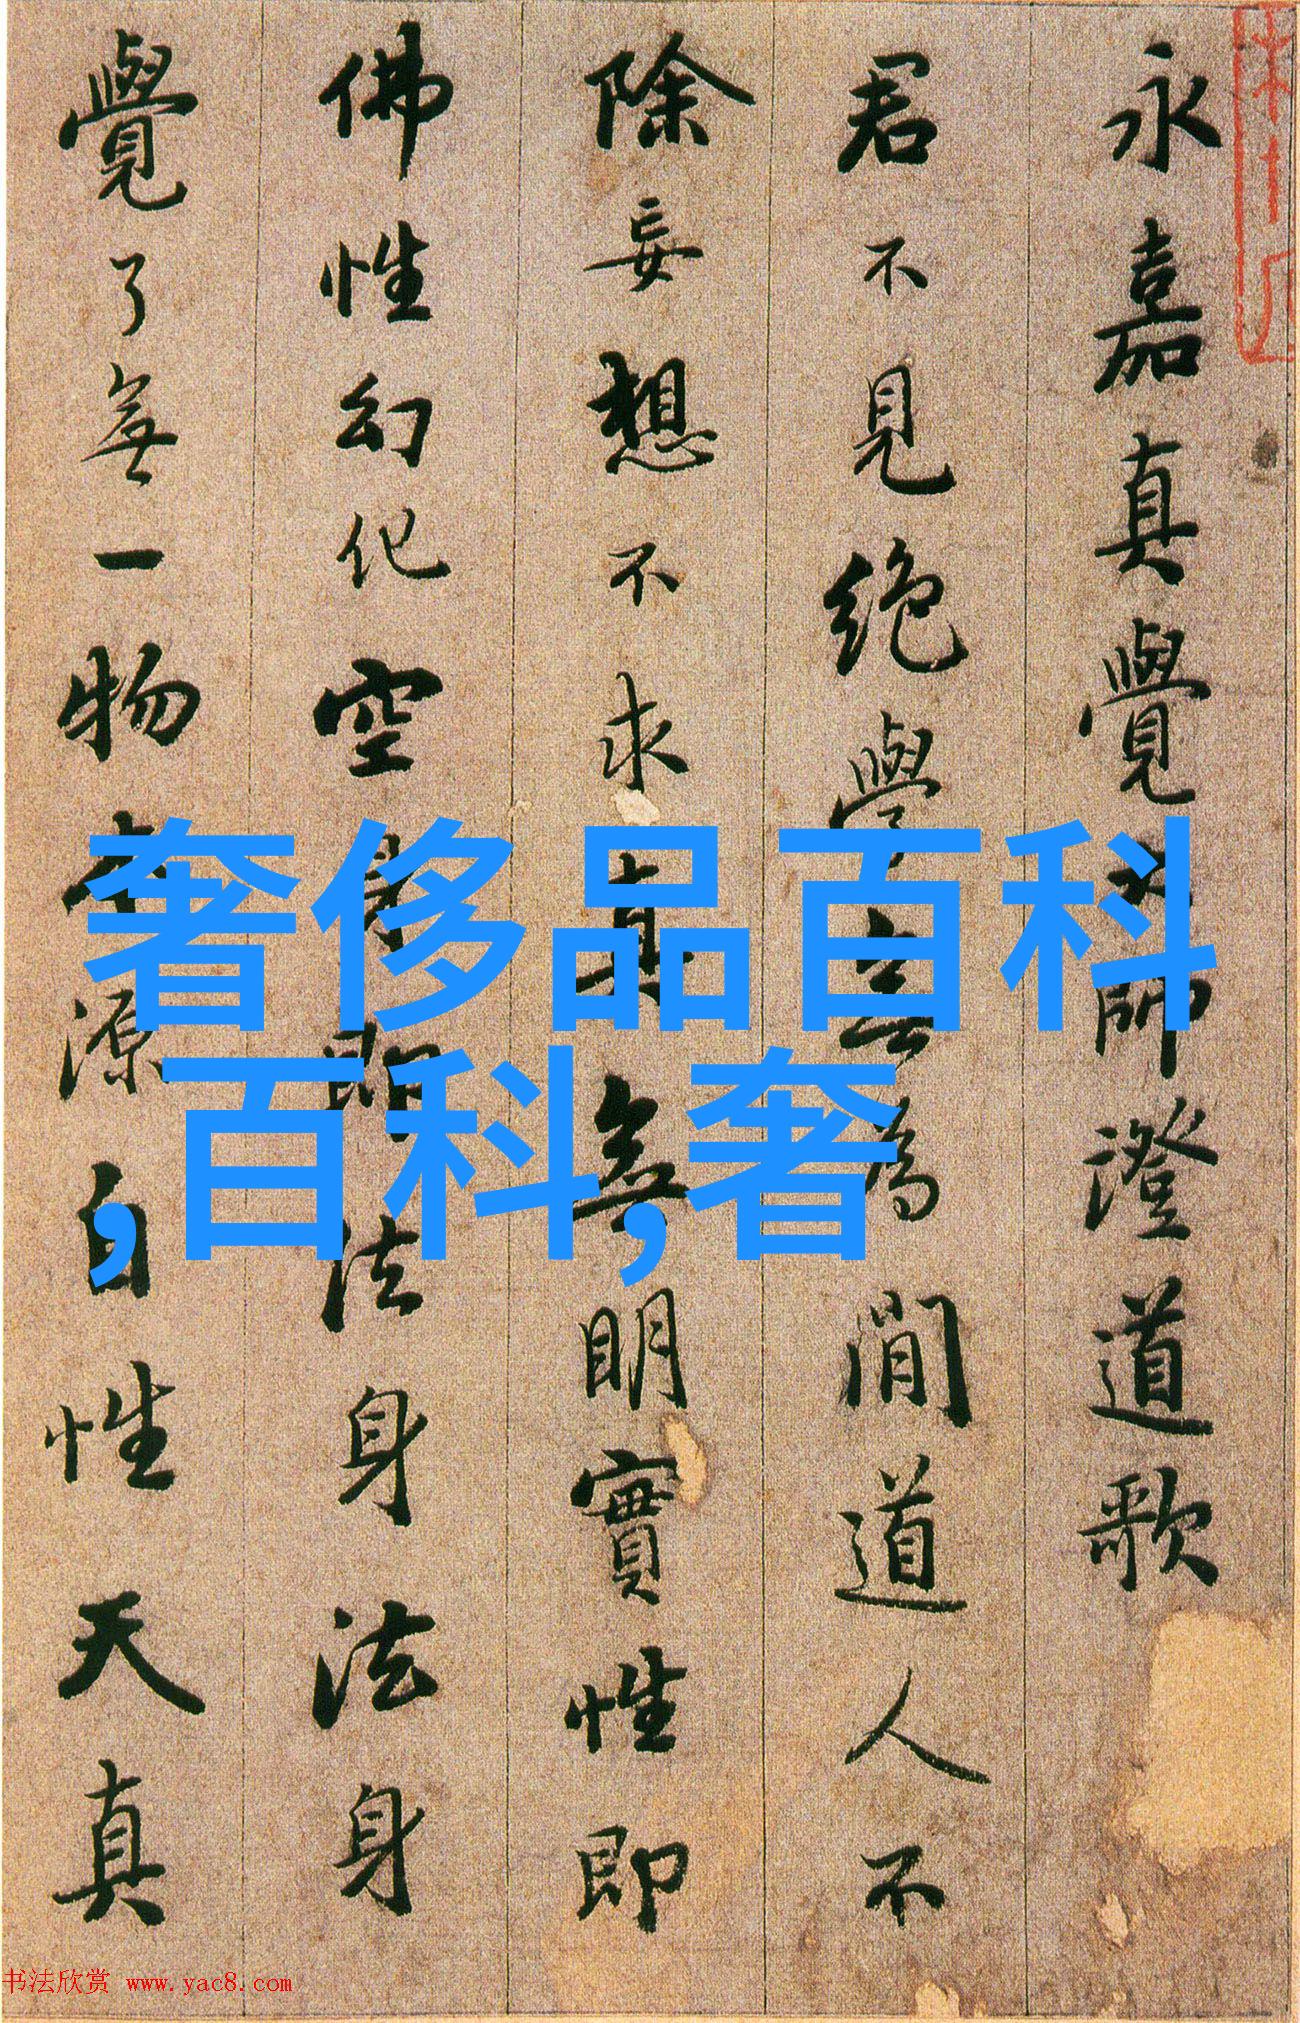 永嘉真覺大師澄道歌
君不見絕學無為閒道人不
除妄想不求真無明實性即
佛性幻化空身即法身法身
覺了無一物本源自性天真
奢侈品百科
,百科,奢
书法欣赏 www.yac8.com